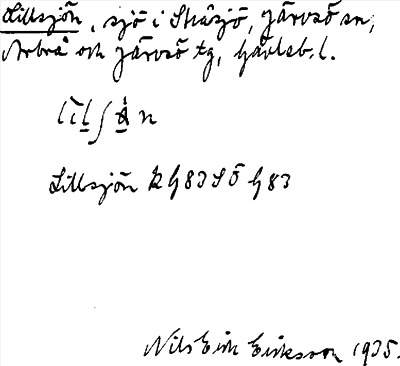 Lillsjön, sjö i Skåsjö, Järvsö sn,
Arbrå och Järvsö tg, Gävleb. l.
Lillsjön k G83 SÖ G83
Nils Erik Eriksson 1935.